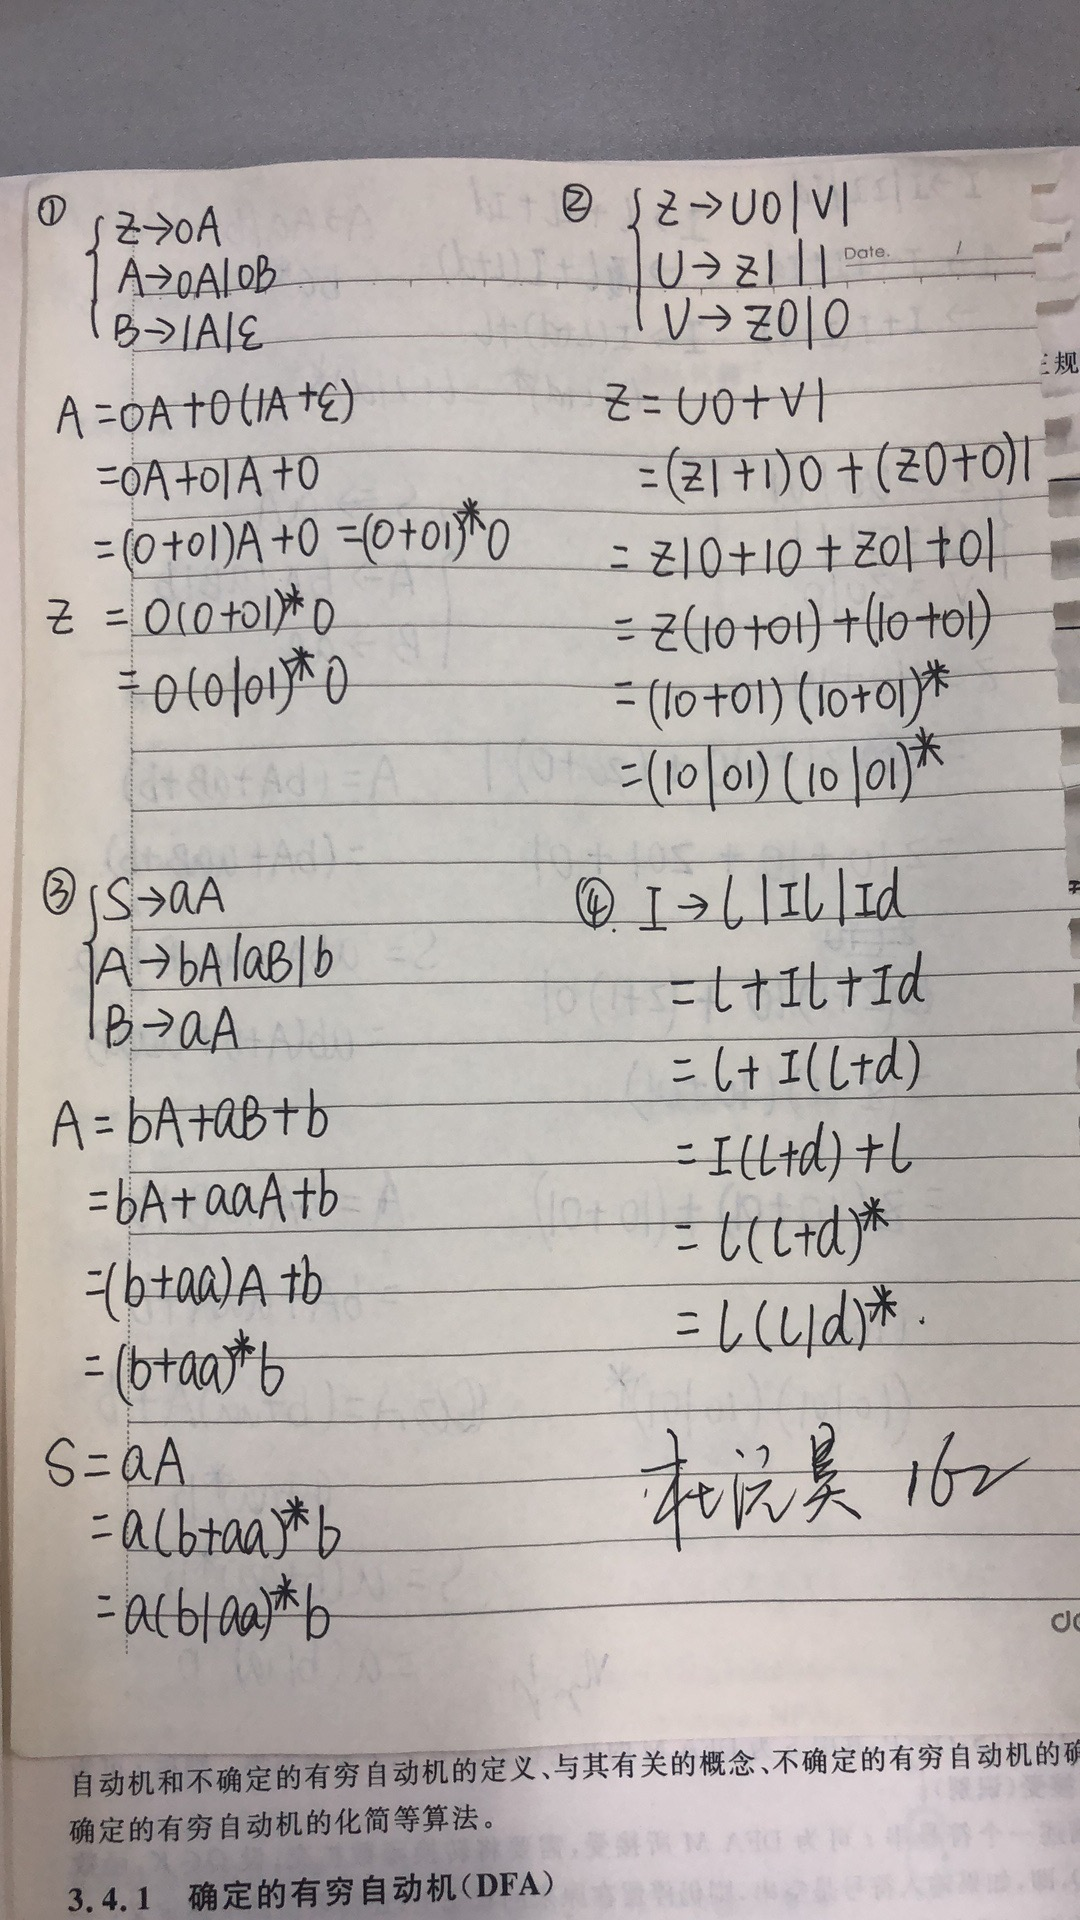 ① Z→0A
A→0A|0B
B→1A|ε
A=0A+0(1A+ε)
=0A+01A+0
=(0+01)A+0=(0+01)*0
Z=0(0+01)*0
=0(0|01)*0
② Z→U0|V1
U→Z1|1
V→Z0|0
Date.
Z=U0+V1
=(Z1+1)0+(Z0+0)1
=Z10+10+Z01+01
=Z(10+01)+(10+01)
=(10+01)(10+01)*
=(10|01)(10|01)*
③ S→aA
A→bA|aB|b
B→aA
A=bA+aB+b
=bA+aaA+b
=(b+aa)A+b
=(b+aa)*b
S=aA
=a(b+aa)*b
=a(b|aa)*b
④. I→l|Il|Id
=l+Il+Id
=l+I(l+d)
=I(l+d)+l
=l(l+d)*
=l(l|d)*.
杜浣昊 162
自动机和不确定的有穷自动机的定义、与其有关的概念、不确定的有穷自动机的确
确定的有穷自动机的化简等算法。
3.4.1 确定的有穷自动机(DFA)